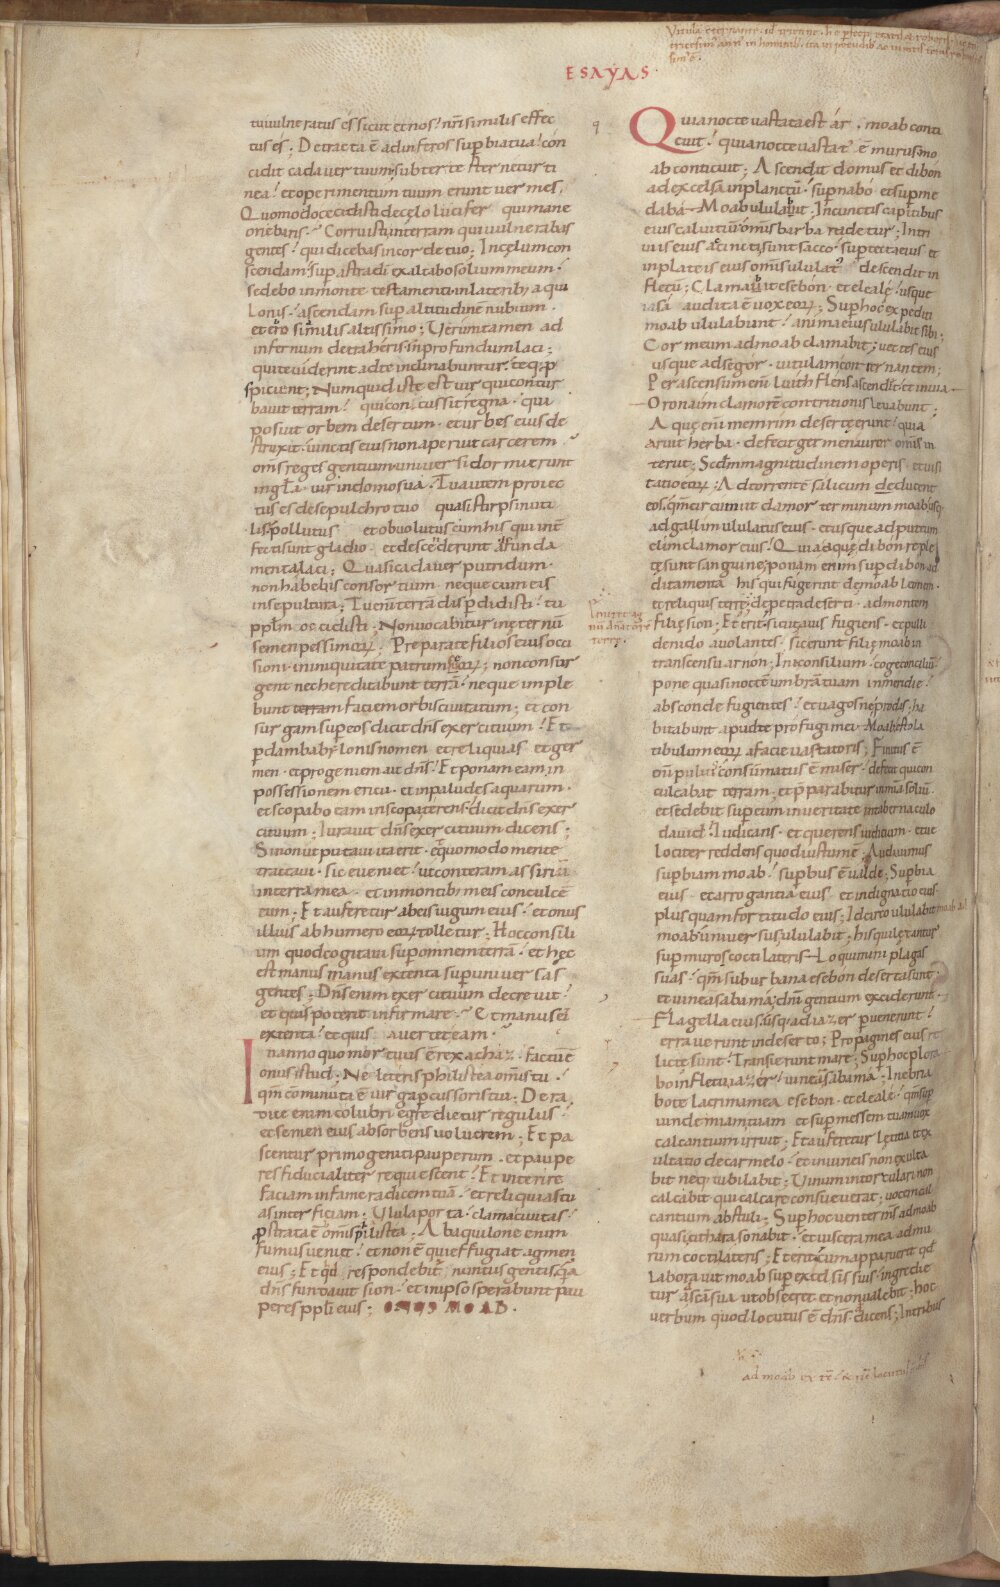 ESAYAS
tu vulneratus es sicut et nos! nr̄i similis effec
tus es; Detracta ē ad inferos superbia tua! con
cidit cadaver tuum; subter te sternetur ti
nea! et operimentum tuum erunt vermes;
Quomodo cecidisti de cęlo lucifer qui mane
oriebaris; Corruisti in terram qui vulnerabas
gentes! qui dicebas in corde tuo; In cęlum con
scendam; sup astra dī exaltabo solium meum!
sedebo in monte testamenti in laterib; aqui
lonis! ascendam sup altitudinē nubium.
et ero similis altissimo; Verumtamen ad
infernum detraheris in profundum laci;
qui te viderint ad te inclinabuntur. teq; p
spicient; Numquid iste est vir qui contur
bavit terram! qui concussit regna. qui
posuit orbem desertum. et urbes eius de
struxit. vinctis eius non aperuit carcerem?
om̄s reges gentium universi dormierunt
in gl̄a. vir in domo sua. Tu autem proiec
tus es de sepulchro tuo quasi stirps inuti
lis. pollutus et obvolutus cum his qui int̄
fecti sunt gladio. et descederunt ad funda
menta laci; Quasi cadaver putridum.
non habebis consortium. neque cum eis
in sepultura; Tu enī terrā disperdidisti! tu
pplm̄ occidisti. Non vocabitur in ęternū
semen pessimoꝝ; Preparate filios eius occi
sioni. in iniquitate patrum suoꝝ; non consur
gent nec hereditabunt terrā! neque imple
bunt terram faciem orbis civitatum; et con
surgam sup eos dicit dn̄s exercituum! Et
perdam babylonis nomen et reliquias et ger
men. et progeniem ait dn̄s! Et ponam eam in
possessionem ericii. et in paludes aquarum.
et scopabo eam in scopa terens. dicit dn̄s exer
cituum; Iuravit dn̄s exercituum dicens;
Si non ut putavi ita erit. et quomodo mente
tractavi. sic eveniet! ut conteram assiriū
in terra mea. et in montib; meis conculcē
eum; Et auferetur ab eis iugum eius! et onus
illius ab humero eoꝝ tolletur; Hoc consili
um quod cogitavi sup omnem terrā! et hęc
est manus manus extenta sup universas
gentes; Dn̄s enim exercituum decrevit!
et quis poterit infirmare? Et manus ei
extenta! et quis avertet eam?
In anno quo mortuus ē rex achaz. factū ē
onus istud; Ne lęteris philistea om̄is tu!
qm̄ comminuta ē virga pcussoris tui. De ra
dice enim colubri egredietur regulus!
et semen eius absorbens volucrem; Et pa
scentur primogeniti pauperum. et paupe
res fiducialiter requiescent! Et interire
faciam in fame radicem tuā! et reliquias tu
as interficiam. Ulula porta. clama civitas!
pstrata ē om̄is philistea; Ab aquilone enim
fumus veniet! et non ē qui effugiat agmen
eius; Et qd respondebit nuntiis gentis? quia
dn̄s fundavit sion. et in ipso sperabunt pau
peres ppl̄i eius; ONUS MOAB.
Quia nocte vastata est ár. moab conti
cuit! quia nocte vastat ē murus mo
ab conticuit; Ascendit domus et dibon
ad excelsa in planctū. sup nabo et sup me
daba Moab ululavit; In cunctis capitibus
eius calvitium omīs barba radetur; In tri
viis eius accincti sunt sacco. sup tecta eius et
in plateis eius om̄is ululat descendit in
fletū; Clamavit esebon. et eleale. usque
iasa audita ē vox eoꝝ; Sup hoc expediti
moab ululabunt! anima eius ululabit sibi;
Cor meum ad moab clamabit; vectes eius
usque ad segor. vitulam conternantem;
Per ascensum enī luith flens ascendit. et in via
Oronaim clamorē contritionis levabunt;
Aquę enī memrim desertę erunt! quia
aruit herba. defecit germen viror om̄is in
terut; Scdm̄ magnitudinem operis. et visi
tatio eoꝝ; Ad torrentē salicum deducent
eos. qm̄ circumiit clamor terminum moab usq;
ad gallim ululatus eius. et usque ad puteum
elim clamor eius! Quia aquę dibon replē
tę sunt sanguine; ponam enim sup dibon ad
ditamenta his qui fugerint de moab leonem.
et reliquis terrę; de petra deserti. ad montem
filię sion; Et erit. sicut avis fugiens. et pulli
de nido avolantes. sic erunt filię moab in
transcensu arnon; Ini consilium. coge concilium
pone quasi noctē umbrā tuam in meridie!
absconde fugientes! et vagos ne prodas; ha
bitabunt apud te profugi mei. Moab esto la
tibulum eoꝝ a facie vastatoris; Finitus ē
enī pulvis consūmatus ē miser! defecit qui con
culcabat terram; et pr̄parabitur in mīa solium.
et sedebit sup eum in veritate in tabernaculo
david! Iudicans. et querens iudicium. et ve
lociter reddens quod iustum ē; Audivimus
superbiam moab! superbus ē valde; Superbia
eius et arrogantia eius et indignatio eius.
plus quam fortitudo eius; Idcirco ululabit moab ad
moab. universus ululabit; his qui lętantur
sup muros cocti lateris Loquimini plagas
suas. qm̄ suburbana esebon deserta sunt.
et vineā sabama; dn̄i gentium exciderunt.
Flagella eius usq; ad iazer pervenerunt!
erraverunt in deserto; Propagines eius re
lictę sunt! Transierunt mare; Sup hoc plora
bo in fletu iazer! vineā sabama; Inebria
bo te lacrima mea esebon. et eleale! qm̄ sup
vindemiam tuam. et sup messem tuam vox
calcantium irruit; Et auferetur lętitia et ex
ultatio de carmelo! et in vineis non exulta
bit neq; iubilabit; Vinum in torculari non
calcabit qui calcare consueverat; vocem cal
cantium abstuli; Sup hoc venter ms̄ ad moab
quasi cithara sonabit! et viscera mea ad mu
rum cocti lateris; Et erit cum apparuerit qd
laboravit moab sup excelsis suis. ingredie
tur ad sca sua ut obsecret. et non valebit; hoc
verbum quod locutus ē dn̄s. dicens; In tribus